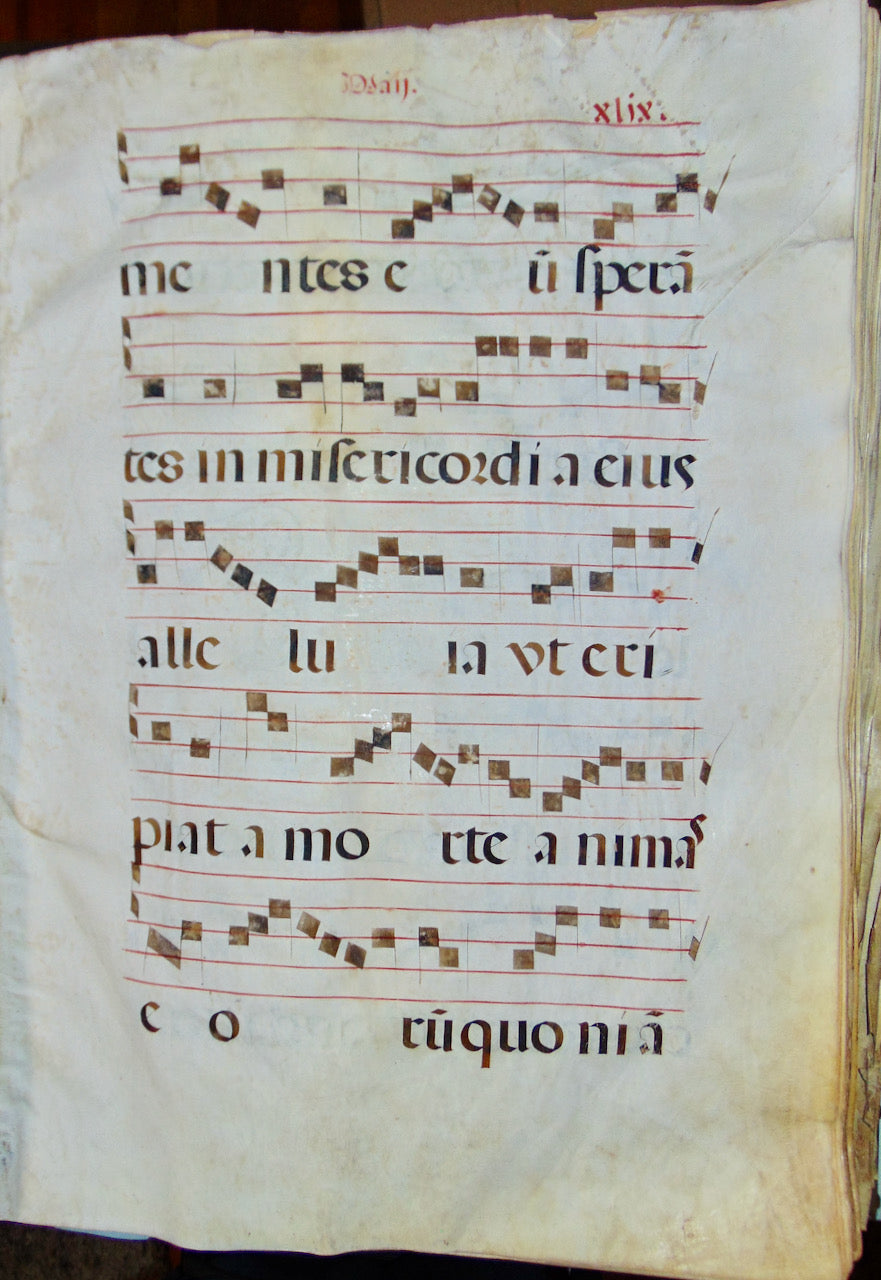 Maij.
xlix.
me ntes e ũ ſperã
tes in miſericordi a eius
alle lu ia vt eri
piat a mo rte a nimas
e o rũ quo niã